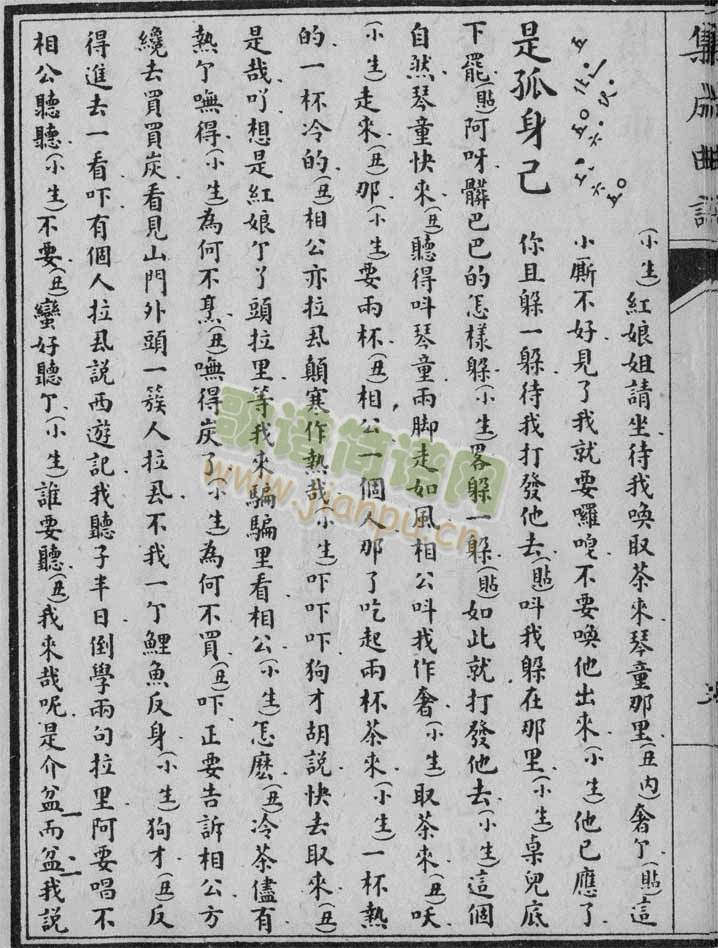 集成曲譜
是孤身己
(小生)紅娘姐請坐待我喚取茶來琴童那里(丑內)奢亇(貼)這
小厮不好見了我就要囉唣不要喚他出來(小生)他已應了
你且躲一躲待我打發他去(貼)呌我躲在那里(小生)桌兒底
下罷(貼)阿呀髒巴巴的怎樣躲(小生)畧躲一躲(貼)如此就打發他去(小生)這個
自然琴童快來(丑)聽得呌琴童兩脚走如風相公呌我作奢(小生)取茶來(丑)吷
(小生)走來(丑)那(小生)要兩杯(丑)相公一個人那了吃起兩杯茶來(小生)一杯熱
的一杯冷的(丑)相公亦拉厾顛寒作熱哉(小生)吓吓吓狗才胡說快去取來(丑)
是哉吖想是紅娘亇丫頭拉里等我來騙騙里看相公(小生)怎麽(丑)冷茶儘有
熱亇嘸得(小生)為何不烹(丑)嘸得炭了(小生)為何不買(丑)吓正要告訴相公方
纔去買買炭看見山門外頭一簇人拉厾不我一亇鯉魚反身(小生)狗才(丑)反
得進去一看吓有個人拉厾說西遊記我聽子半日倒學兩句拉里阿要唱不
相公聽聽(小生)不要(丑)蠻好聽亇(小生)誰要聽(丑)我來哉呢是介盆而盆我說
歌谱简谱网
www.jianpu.cn